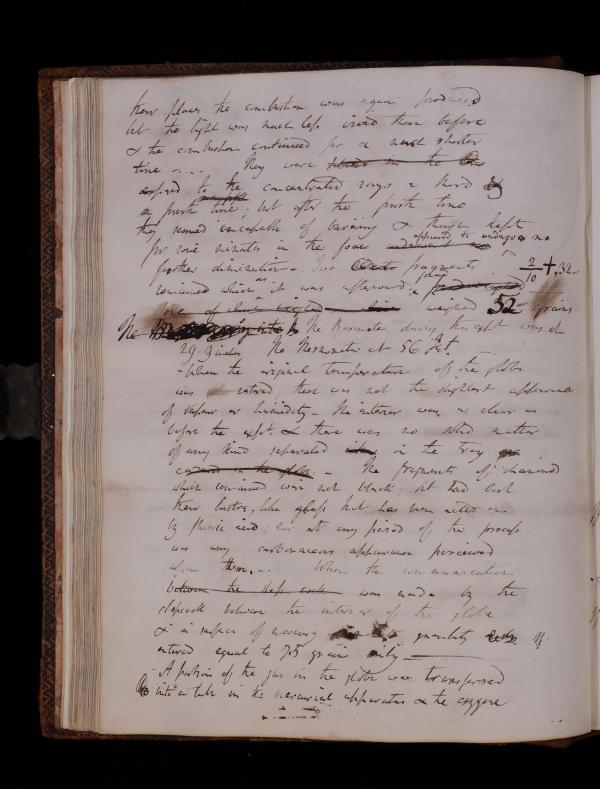 their places the combustion was again produced
but the light was much less vivid than before
& the combustion continued for a much shorter
time. – They were
exposed to the concentrated rays a third
a fresh time; but after the fresh time
they seemed incapable of burning & though kept
for some minutes in the focus appeared to undergo no
further diminution. two fragments 2/10 + .32
remained which as it was afterwards found
weighed .52 grains
The Barometer during this expt was at
29.9 inches The Thermometer at 56 Fht.
– When the original temperature of the globe
was restored, there was not the slightest appearance
of vapour or humidity – The interior was as clear as
before the expt. & there was no solid matter
of any kind separated in the tray
– The fragments of diamond
which remained were not black; but had lost
their lustre, like glass that has been acted on
by fluoric acid; nor at any period of the process
was any carbonaceous appearance perceived
upon them. – When the communication
between the was made by the
stopcock between the interior of the globe
& a surface of mercury quantity
entered equal to 7.5 grains only –
– A portion of the gas in the globe was transferred
into a tube in the mercurial apparatus & the oxygene